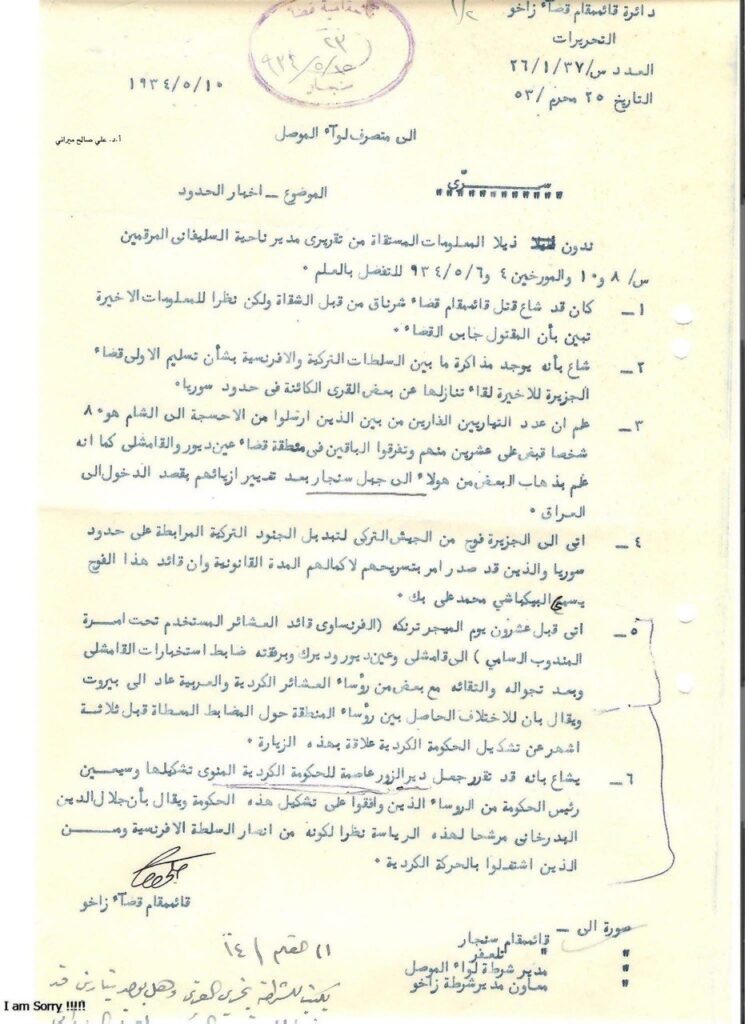 دائرة قائممقام قضاء زاخو
التحريرات
العدد س/٢٦/١/٣٧
التاريخ ٢٥ محرم /٥٣
١/٢
قضاء
٢٣
٩٣٤/٥/١٥
سنجار
١٩٣٤/٥/١٠
أ.د. علي صالح ميراني
الى متصرف لواء الموصل
ســـرّي
الموضوع ـ اخبار الحدود
ندون ذيلا المعلومات المستقاة من تقريرى مدير ناحية السليفانى المرقمين
س/ ٨ و١٠ والمورخين ٤ و٩٣٤/٥/٦ للتفضل بالعلم ٠
١ـ كان قد شاع قتل قائممقام قضاء شرناق من قبل الشقاة ولكن نظرا للمعلومات الاخيرة
تبين بأن المقتول جابى القضاء ٠
٢ـ شاع بأنه يوجد مذاكرة ما بين السلطات التركية والافرنسية بشأن تسليم الاولى قضاء
الجزيرة للاخيرة لقاء تنازلها عن بعض القرى الكائنة فى حدود سوريا٠
٣ـ علم ان عدد التياريين الفارين من بين الذين ارسلوا من الاحسجة الى الشام هو ٨٠
شخصا قبض على عشرين منهم وتفرقوا الباقين فى منطقة قضاء عين ديور والقامشلى كما انه
علم بذهاب البعض من هولاء الى جبل سنجار بعد تغيير ازيائهم بقصد الدخول الى
العراق ٠
٤ـ اتى الى الجزيرة فوج من الجيش التركى لتبديل الجنود التركية المرابطة على حدود
سوريا والذين قد صدر امر بتسريحهم لاكمالهم المدة القانونية وان قائد هذا الفوج
يسمى البيكباشي محمد على بك ٠
٥ـ اتى قبل عشرون يوم الميجر ترنكه (الفرنساوى قائد العشائر المستخدم تحت امرة
المندوب السامي) الى قامشلى وعين ديور وديرك وبرفقته ضابط استخبارات القامشلى
وبعد تجواله والتقائه مع بعض من رؤساء العشائر الكردية والعربية عاد الى بيروت
ويقال بان للاختلاف الحاصل بين رؤساء المنطقة حول المضابط المعطاة قبل ثلاثة
اشهر عن تشكيل الحكومة الكردية علاقة بهذه الزيارة ٠
٦ـ يشاع بانه قد تقرر جعل ديرالزور عاصمة للحكومة الكردية المنوى تشكيلها وسيعين
رئيس الحكومة من الروساء الذين وافقوا على تشكيل هذه الحكومة ويقال بأن جلال الدين
البدرخانى مرشحا لهذه الرياسة نظرا لكونه من انصار السلطة الافرنسية ومـــن
الذين اشتغلوا بالحركة الكردية ٠
قائممقام قضاء زاخو
صورة الى ـ قائممقام سنجار
" " تلعفر
" مدير شرطة لواء الموصل
" معاون مدير شرطة زاخو
يكتب للشرطة
I am Sorry !!!!!